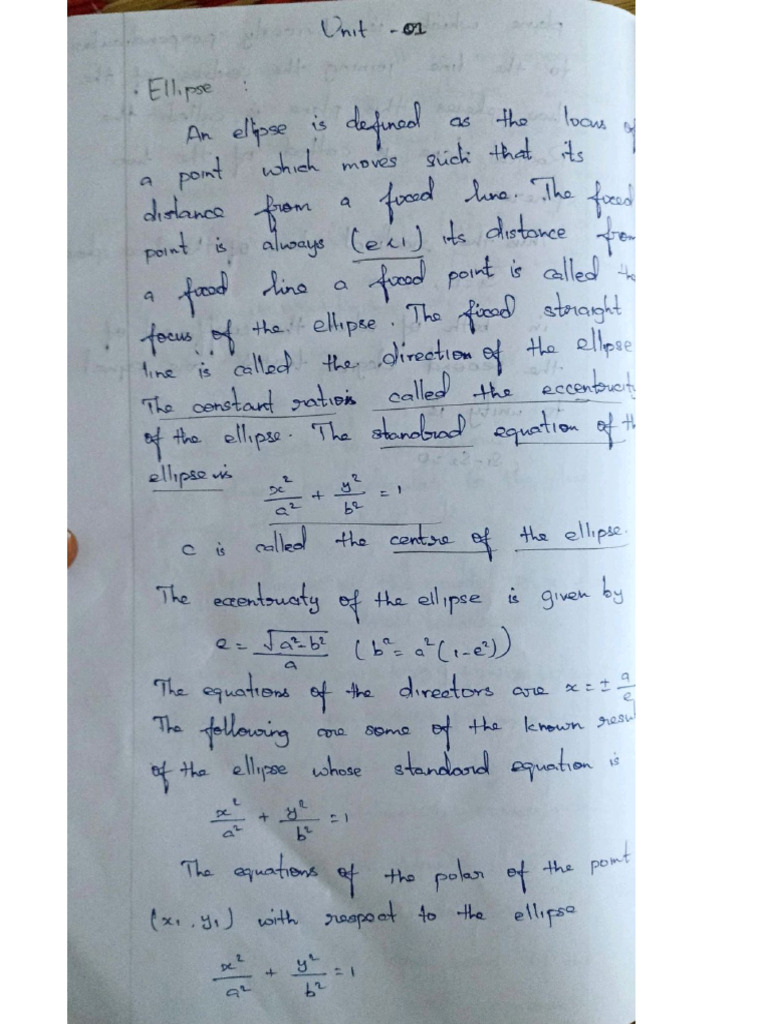 Unit - 01
. Ellipse :
An ellipse is defined as the locus of
a point which moves such that its
distance from a fixed line. The fixed
point is always (e<1) its distance from
a fixed line a fixed point is called the
focus of the ellipse. The fixed straight
line is called the direction of the ellipse
The constant ratio is called the eccentricity
of the ellipse. The standrad equation of th
ellipse is
x²/a² + y²/b² = 1
C is called the centre of the ellipse.
The eccentricity of the ellipse is given by
e = √a²-b²/a (b² = a²(1-e²))
The equations of the directors are x = ± a/e
The following are some of the known resu
of the ellipse whose standard equation is
x²/a² + y²/b² = 1
The equations of the polar of the point
(x₁, y₁) with respect to the ellipse
x²/a² + y²/b² = 1